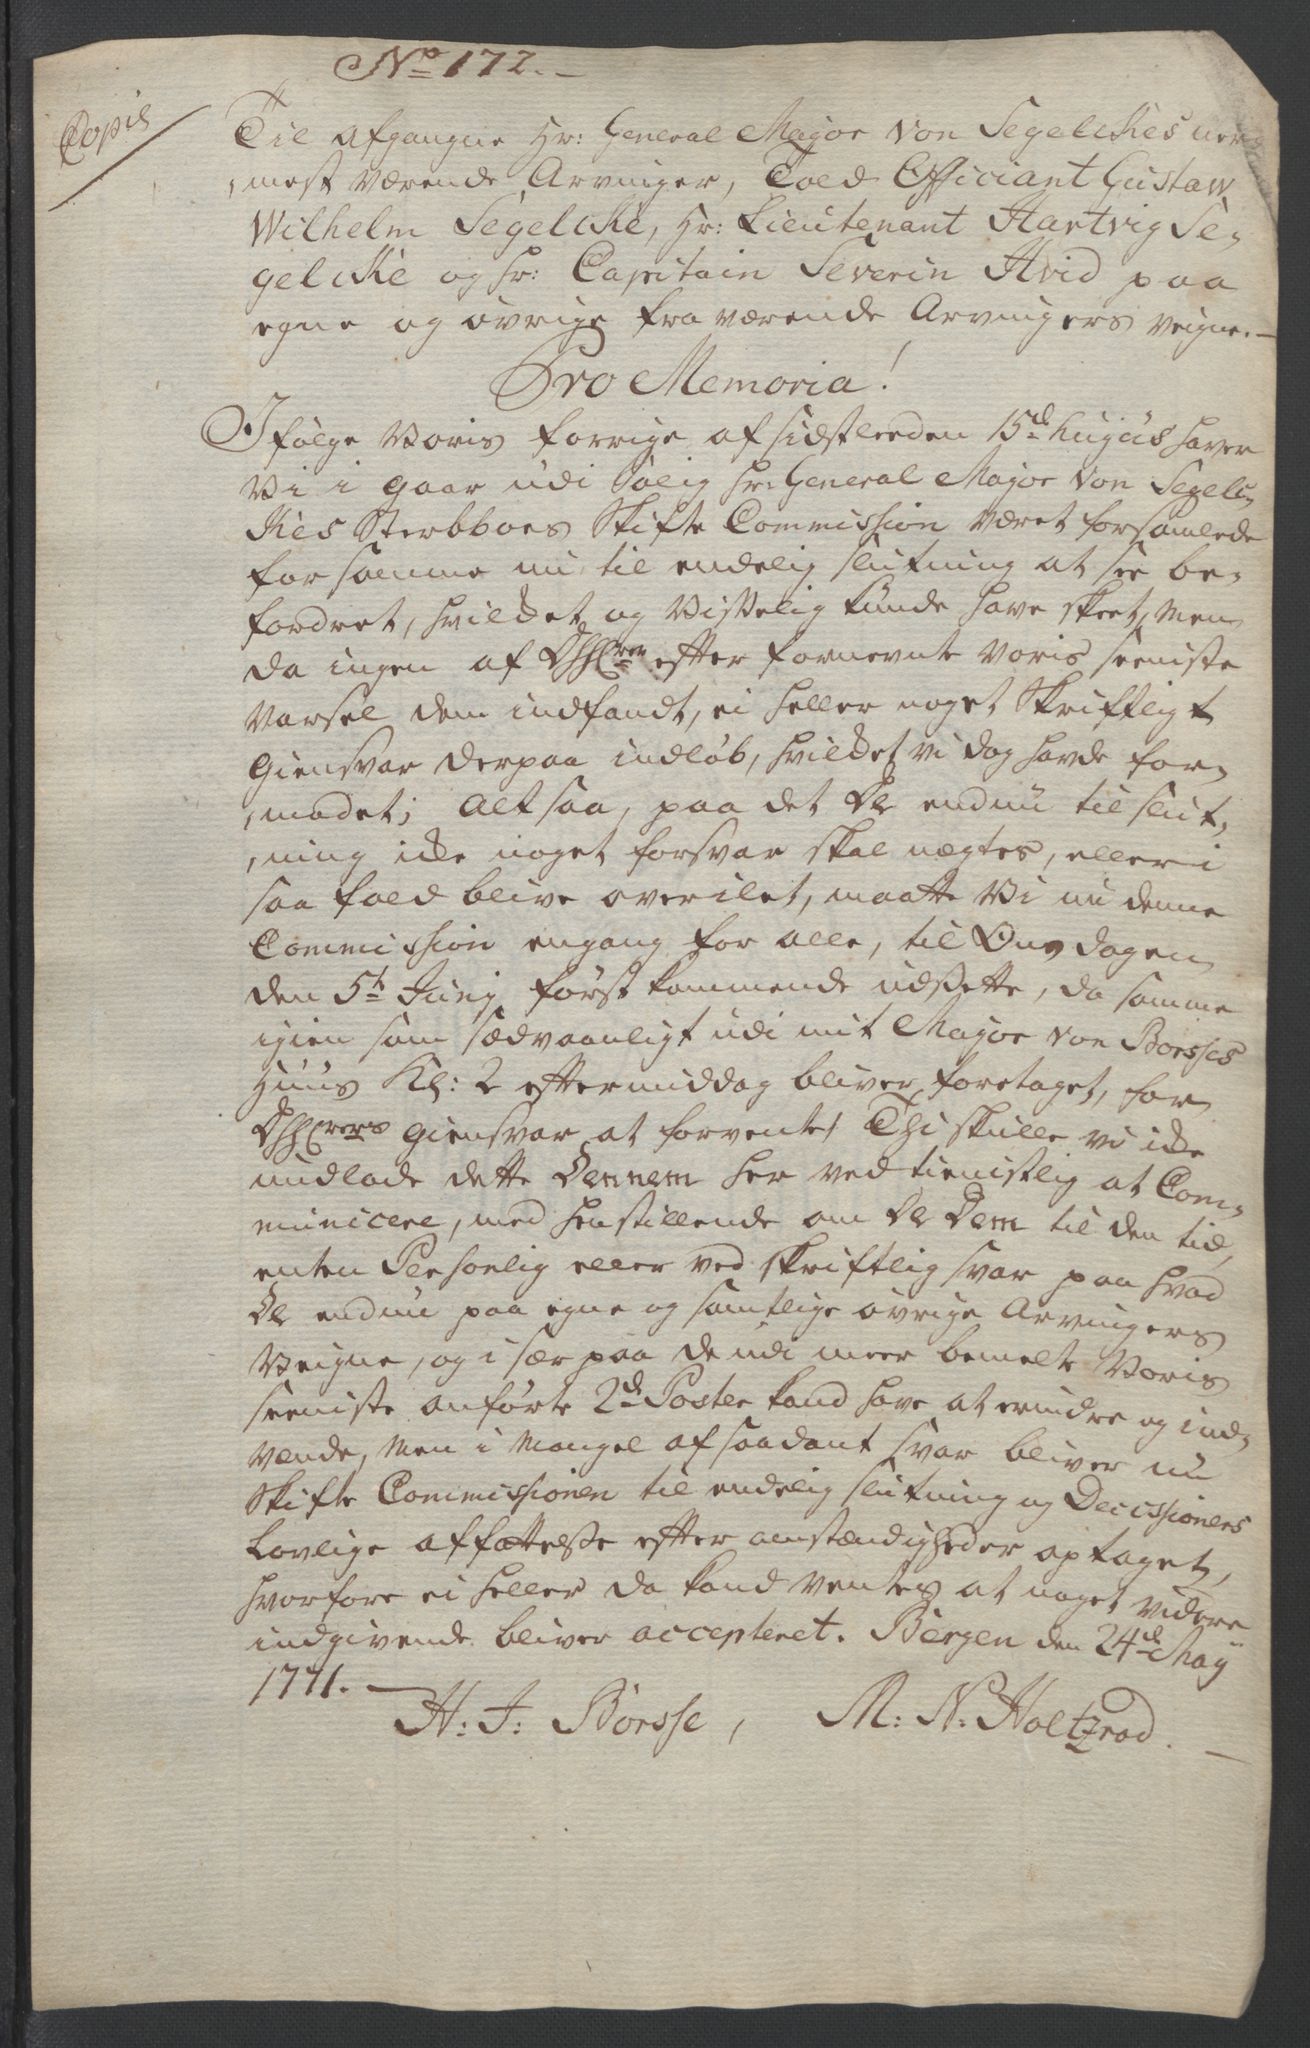 No 172.
Copie
Til afgangne Hr: General Major Von Segelckes ner-
mest værende Arvinger, Told Officiant Gustav
Wilhelm Segelcke, Hr: Lieutenant Hartvig Se-
gelcke og Hr: Capitain Severin Hvid paa
egne og øvrige fraværende Arvingers veigne.
Pro Memoria!
I følge Voris forrige af sidstleeden 15de hujus haver
Vi i gaar udi Salig Hr: General Major Von Segelc-
kes Sterbboes Skifte Commission været forsamlede
for samme nu til endelig slutning at see be-
fordret, hvilcket og visselig kunde have skeet, Men
da ingen af DhhErer efter fornevnte Voris seeniste
Varsel dem indfandt, ei heller noget Skriftligt
Giensvar derpaa indløb, hvilcket vi dog havde for-
modet; Alt saa, paa det De endnu til slut-
ning icke noget forsvar skal nægtes, eller i
saa fald blive overilet, maatte Vi nu denne
Commission engang for alle, til Onsdagen
den 5te Junij først kommende udsette, da samme
igien som sædvaanligt udi mit Major von Børsses
Huus Kl: 2 eftermiddag bliver foretaget, for
DhhErers giensvar at forvente, Thi skulle vi icke
undlade dette Dennem her ved tienistlig at Com-
municere, med henstillende om De Dem til den tid,
enten Personlig eller ved skriftlig svar paa hvad
De endnu paa egne og samtlige øvrige Arvingers
Veigne, og i sær paa de udi meer bemelte Voris
seeniste anførte 2de Poster kand have at erindre og ind-
vende, Men i Mangel af saadant svar bliver nu
Skifte Commissionen til endelig slutning og Decissionens
Lovlige affattelse efter omstændigheder optaget,
hvorfore ei heller da kand ventes at noget videre
indgivende bliver accepteret. Bergen den 24de May
1771.
H: J: Børsse, M: N: Holtzrod.